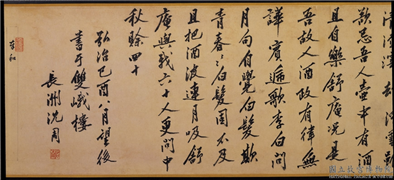 歎息吾人壺中有酒
且自樂舒庵況是
吾故人酒政有律無
譁賓遍歌李白問
月句自覺白髮欺
青春〻白髮固不及
且把酒浪連月吸舒
庵與我六十人更問中
秋賒四十
弘治己酉八月望後
書于雙峨樓
長洲沈周